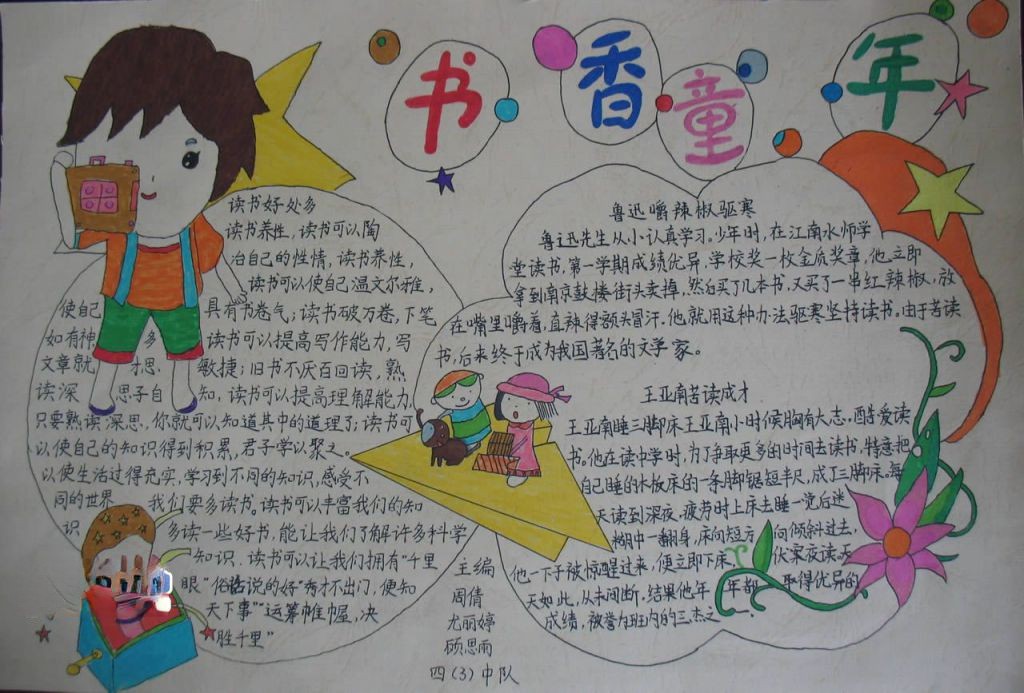 书香童年
读书好处多
读书养性，读书可以陶
冶自己的性情，读书养性，
读书可以使自己温文尔雅，
使自己具有书卷气；读书破万卷，下笔
如有神多读书可以提高写作能力，写
文章就才思敏捷；旧书不厌百回读，熟
读深思子自知，读书可以提高理解能力，
只要熟读深思，你就可以知道其中的道理了；读书可
以使自己的知识得到积累，君子学以聚之。
以使生活过得充实，学习到不同的知识，感受不
同的世界我们要多读书。读书可以丰富我们的知
识多读一些好书，能让我们了解许多科学
知识．读书可以让我们拥有“千里
眼”俗话说的好“秀才不出门，便知
天下事”“运筹帷幄，决
胜千里”
鲁迅嚼辣椒驱寒
鲁迅先生从小认真学习。少年时，在江南水师学
堂读书，第一学期成绩优异，学校奖一枚金质奖章，他立即
拿到南京鼓楼街头卖掉，然后买了几本书，又买了一串红辣椒，放
在嘴里嚼着，直辣得额头冒汗。他就用这种办法驱寒坚持读书。由于苦读
书，后来终于成为我国著名的文学家。
王亚南苦读成才
王亚南睡三脚床王亚南小时候胸有大志，酷爱读
书。他在读中学时，为了争取更多的时间去读书，特意把
自己睡的木板床的一条脚锯短半尺，成了三脚床。每
天读到深夜，疲劳时上床去睡一觉后迷
糊中一翻身，床向短方向倾斜过去，
他一下子被惊醒过来，便立即下床，伏案夜读。天
天如此，从未间断，结果他年年都取得优异的
成绩，被誉为班内的三杰之一．
主编
周倩
尤丽婷
顾思雨
四（3）中队